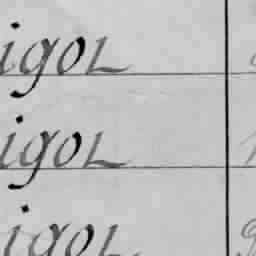 igol
igol
igol